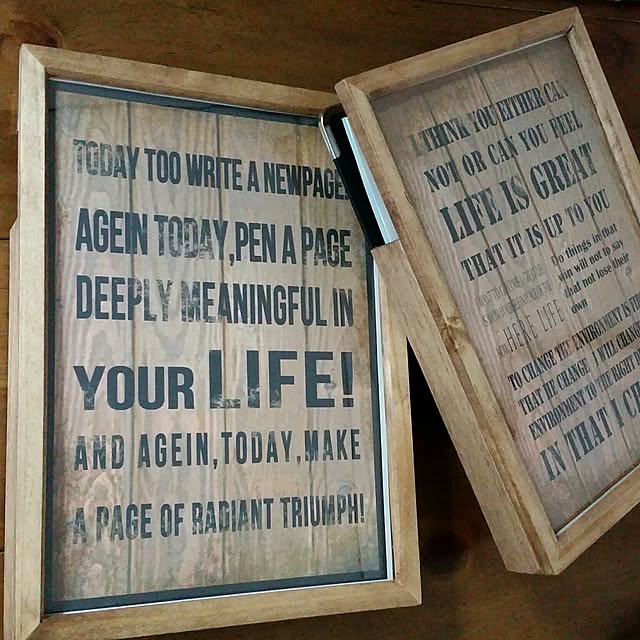 TODAY TOO WRITE A NEWPAGE.
AGEIN TODAY, PEN A PAGE
DEEPLY MEANINGFUL IN
YOUR LIFE!
AND AGEIN, TODAY, MAKE
A PAGE OF RADIANT TRIUMPH!
I THINK YOU EITHER CAN
NOT OR CAN YOU FEEL
LIFE IS GREAT
THAT IT IS UP TO YOU
Do things in that
win will not to say
that not lose their
own
HERE LIFE
TO CHANGE THE ENVIRONMENT IS THE
THAT HE CHANGE. I WILL CHANG
ENVIRONMENT TO THE RIGHT
IN THAT I C